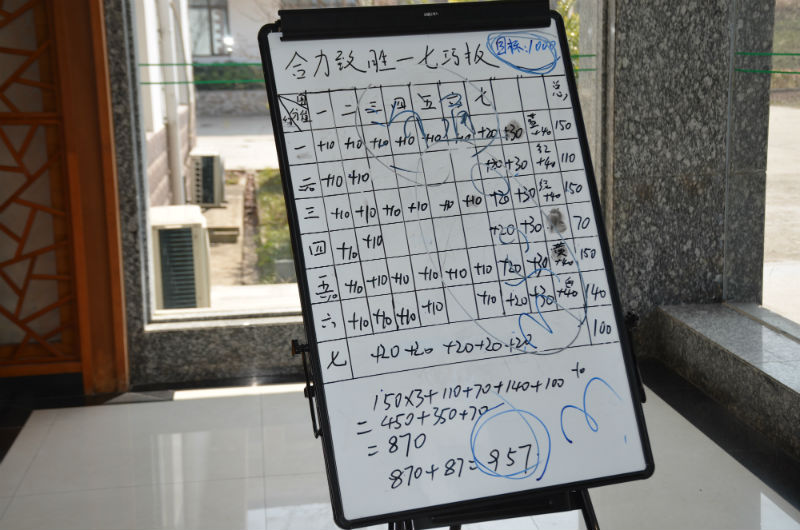 合力致胜—七巧板 目标:1000
组 分值 一 二 三 四 五 六 七 总
一 +10 +10 +10 +10 +10 +10 +20 +30 黄+40 150
二 +10 +10 +20 +30 红+40 110
三 +10 +10 +10 +10 +10 +10 +20 +30 红+40 150
四 +10 +10 +20 +30 70
五 +10 +10 +10 +10 +10 +10 +20 +30 黄+40 150
六 +10 +10 +10 +10 +10 +20 +30 +40 140
七 +20 +20 +20 +20 +20 100
150×3+110+70+140+100
=450+350+70
=870
870+87=957